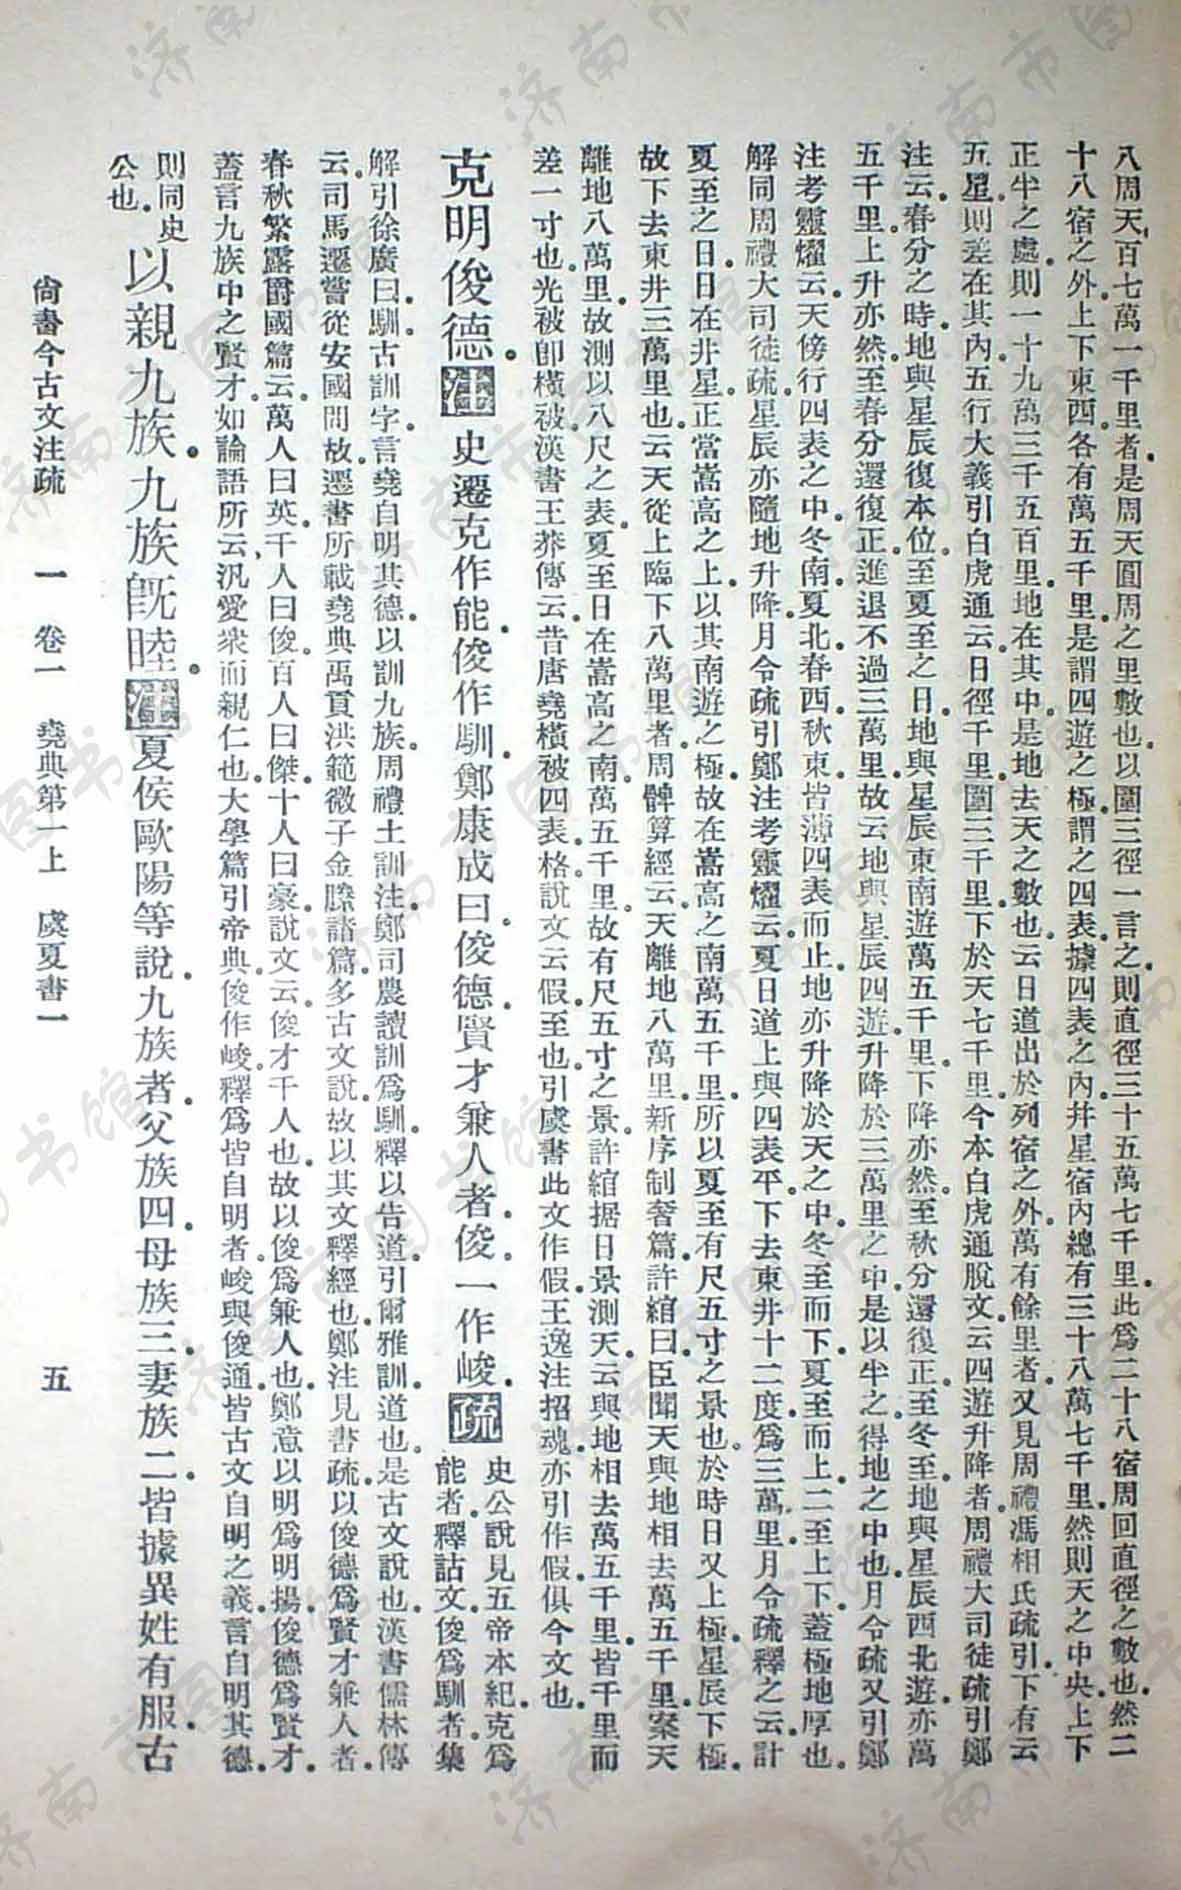 八周天百七萬一千里者是周天圓周之里數也以圍三徑一言之則直徑三十五萬七千里此爲二十八宿周回直徑之數也然二
十八宿之外上下東西各有萬五千里是謂四遊之極謂之四表據四表之內幷星宿內總有三十八萬七千里然則天之中央上下
正半之處則一十九萬三千五百里地在其中是地去天之數也云日道出於列宿之外萬有餘里者又見周禮馮相氏疏引下有云
五星則差在其內五行大義引白虎通云日徑千里圍三千里下於天七千里今本白虎通脫文云四遊升降者周禮大司徒疏引鄭
注云春分之時地與星辰復本位至夏至之日地與星辰東南遊萬五千里下降亦然至秋分還復正至冬至地與星辰西北遊亦萬
五千里上升亦然至春分還復正進退不過三萬里故云地與星辰四遊升降於三萬里之中是以半之得地之中也月令疏又引鄭
注考靈耀云天傍行四表之中冬南夏北春西秋東皆薄四表而止地亦升降於天之中冬至而下夏至而上二至上下蓋極地厚也
解同周禮大司徒疏星辰亦隨地升降月令疏引鄭注考靈耀云夏日道上與四表平下去東井十二度爲三萬里月令疏釋之云計
夏至之日日在井星正當嵩高之上以其南遊之極故在嵩高之南萬五千里所以夏至有尺五寸之景也於時日又上極星辰下極
故下去東井三萬里也云天從上臨下八萬里者周髀算經云天離地八萬里新序制奢篇許綰曰臣聞天與地相去萬五千里案天
離地八萬里故測以八尺之表夏至日在嵩高之南萬五千里故有尺五寸之景許綰据日景測天云與地相去萬五千里皆千里而
差一寸也光被卽橫被漢書王莽傳云昔唐堯橫被四表格說文云假至也引虞書此文作假王逸注招魂亦引作假俱今文也
克明俊德注史遷克作能俊作馴鄭康成曰俊德賢才兼人者俊一作峻疏史公說見五帝本紀克爲
能者釋詁文俊爲馴者集
解引徐廣曰馴古訓字言堯自明其德以訓九族周禮土訓注鄭司農讀訓爲馴釋以告道引爾雅訓道也是古文說也漢書儒林傳
云司馬遷嘗從安國問故遷書所載堯典禹貢洪範微子金縢諸篇多古文說故以其文釋經也鄭注見書疏以俊德爲賢才兼人者
春秋繁露爵國篇云萬人曰英千人曰俊百人曰傑十人曰豪說文云俊才千人也故以俊爲兼人也鄭意以明爲明揚俊德爲賢才
蓋言九族中之賢才如論語所云汎愛衆而親仁也大學篇引帝典俊作峻釋爲皆自明者峻與俊通皆古文自明之義言自明其德
則同史
公也以親九族九族旣睦注夏侯歐陽等說九族者父族四母族三妻族二皆據異姓有服古
尚書今古文注疏 一 卷一 堯典第一上 虞夏書一 五